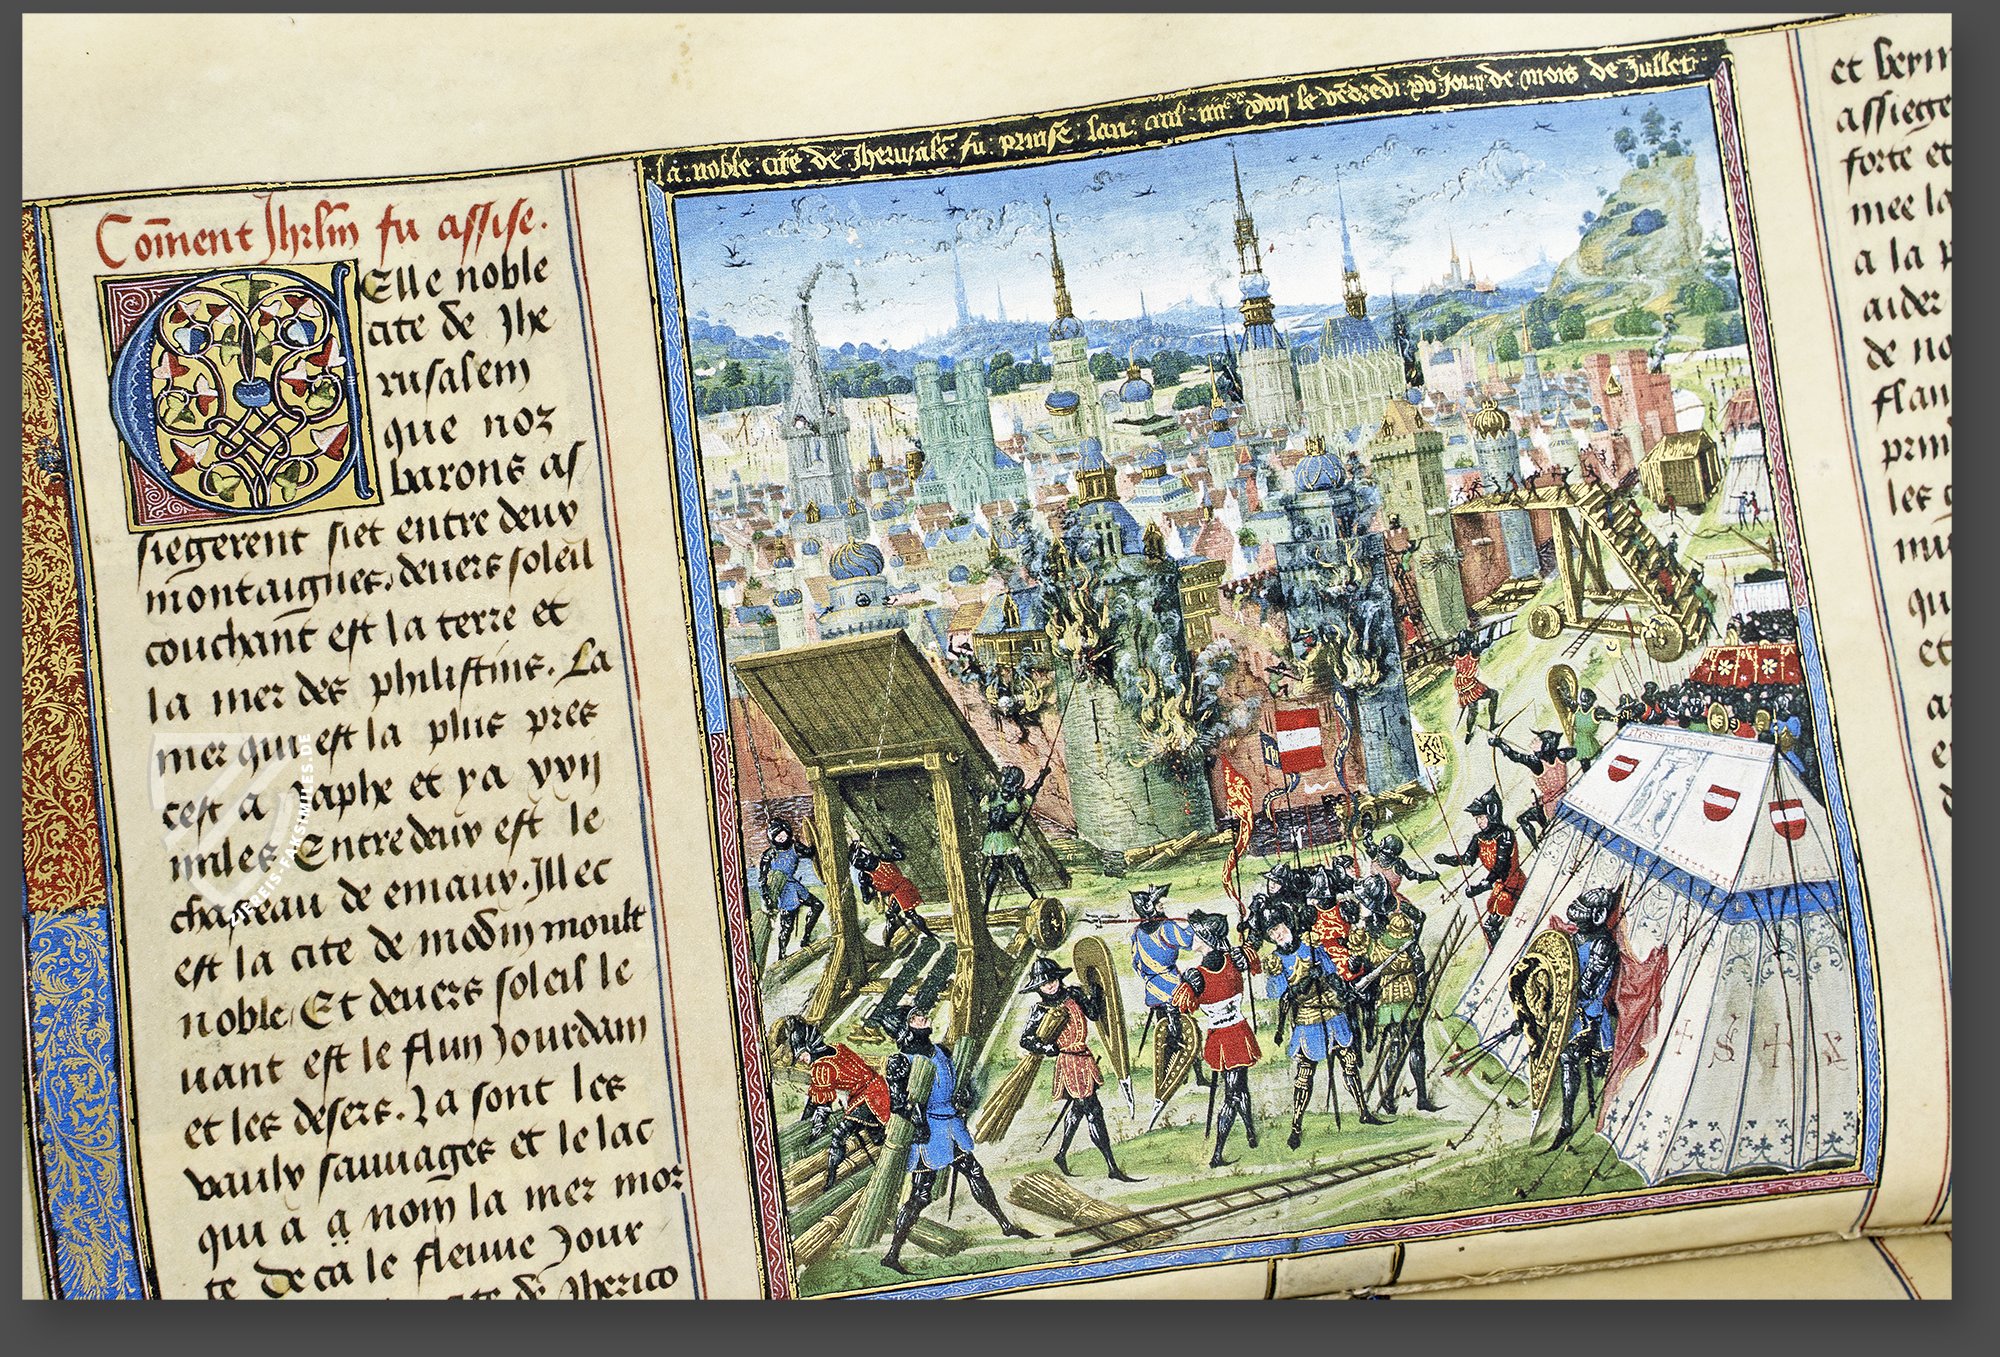 Com̄ent Jhrlm̄ fu assise.
CElle noble
cite de Jhe
rusalem
que noz
barons as
siegerent siet entre deux
montaignes. deuers soleil
couchant est la terre et
la mer des philistins. La
mer qui est la plus pres
cest a Japhe et y a xvij
miles Entredeux est le
chasteau de emaux. Illec
est la cite de modin moult
noble Et deuers soleil le
uant est le flun Jourdam
et les desers. La sont les
vaulx sauuages et le lac
qui a a nom̄ la mer mor
te De ca le fleuue Jour
de Jherico
la noble cite de Jherusalē fu prinse lan mil iiii xx xvij le vēdredi xv jour de mois de Jullet
et
assiege
forte et
mee la
a la p
aider
de no
flan
prin
les
mu
qu
et
ZIEREIS-FAKSIMILES.DE